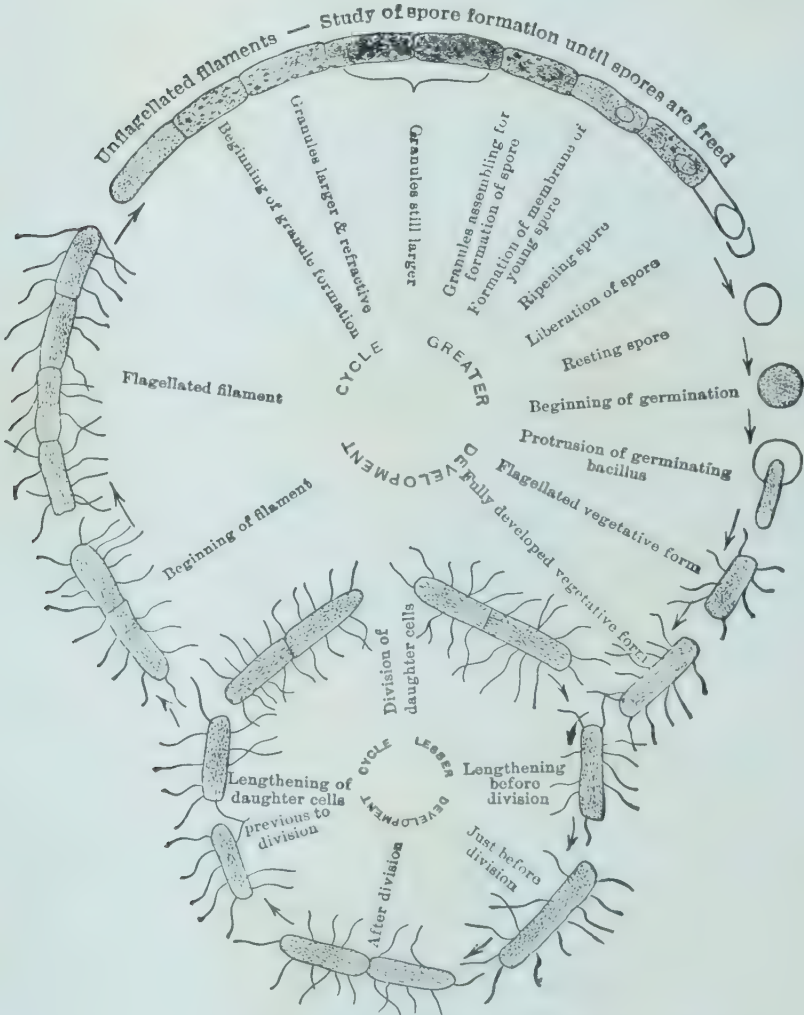 Unflagellated filaments — Study of spore formation until spores are freed
Beginning of granule formation
Granules larger & refractive
Granules still larger
Granules assembling for
formation of spore
Formation of membrane of
young spore
Ripening spore
Liberation of spore
Resting spore
Beginning of germination
Protrusion of germinating
bacillus
Flagellated vegetative form
Fully developed vegetative form
Flagellated filament
Beginning of filament
GREATER
DEVELOPMENT
CYCLE
Division of
daughter cells
Lengthening
before
division
Just before
division
After division
Lengthening of
daughter cells
previous to
division
LESSER
DEVELOPMENT
CYCLE